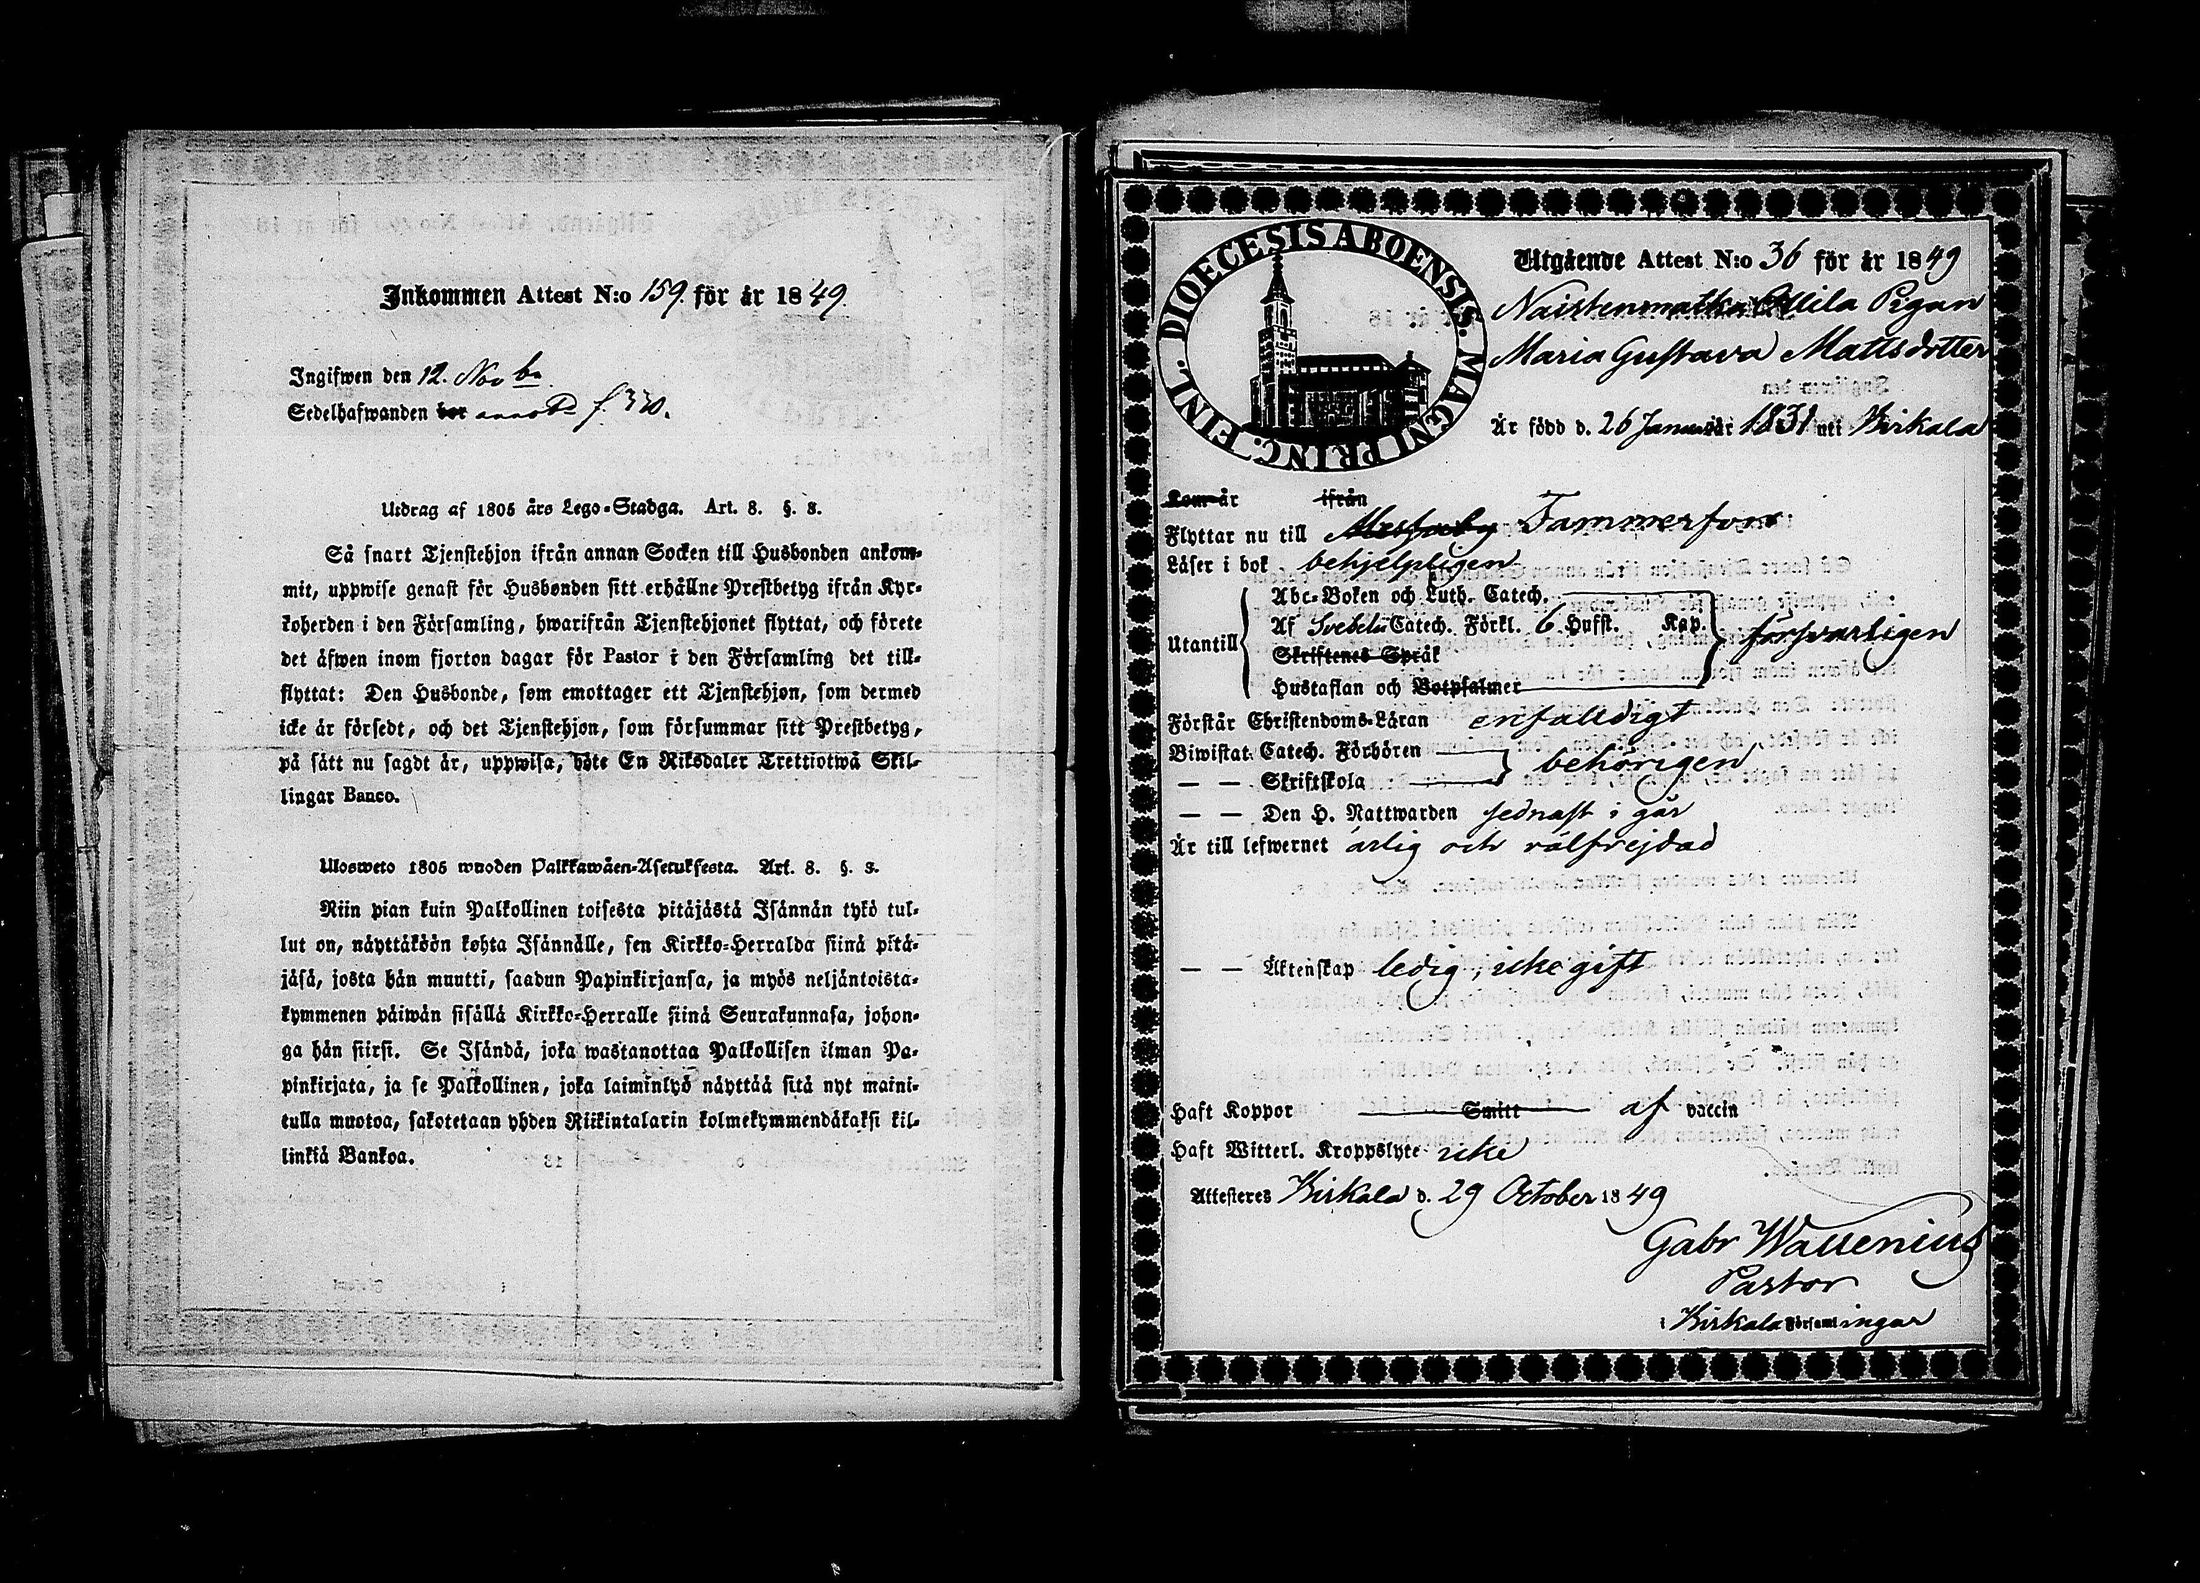 Inkommen Attest N:o 159. för år 1849.
Ingifwen den 12. Novbr
Sedelhafwanden bor annotd f. 330.
Utdrag af 1805 års Lego-Stadga. Art. 8. §. 8.
Så snart Tjenstehjon ifrån annan Socken till Husbonden ankom-
mit, uppwise genast för Husbonden sitt erhållne Prestbetyg ifrån Kyr-
koherden i den Församling, hwarifrån Tjenstehjonet flyttat, och förete
det äfwen inom fjorton dagar för Pastor i den Församling det till-
flyttat: Den Husbonde, som emottager ett Tjenstehjon, som dermed
icke är försedt, och det Tjenstehjon, som försummar sitt Prestbetyg,
på sätt nu sagdt är, uppwisa, böte En Riksdaler Trettiotwå Skil-
lingar Banco.
Ulosweto 1805 wuoden Palkkawäen-Asetuksesta. Art. 8. §. 8.
Niin pian kuin Palkollinen toisesta pitäjästä Isännän tykö tul-
lut on, näyttäköön kohta Isännälle, sen Kirkko-Herralda siinä pitä-
jäsä, josta hän muutti, saadun Papinkirjansa, ja myös neljäntoista-
kymmenen päiwän sisällä Kirkko-Herralle siinä Seurakunnasa, johon-
ga hän siirsi. Se Isändä, joka wastanottaa Palkollisen ilman Pa-
pinkirjata, ja se Palkollinen, joka laiminlyö näyttää sitä nyt maini-
tulla muotoa, sakotetaan yhden Riikintalarin kolmekymmendäkaksi kil-
linkiä Bankoa.
DIOECESIS ABOENSIS. MAGNI PRINC. FINL.
Utgående Attest N:o 36 för år 1849
Naistenmatka Ollila Pigan
Maria Gustava Mattsdotter
Är född d. 26 Januari år 1831 uti Birkala
Kom år ifrån
Flyttar nu till Messuby Tammerfors
Läser i bok behjelpligen
Abc-Boken och Luth. Catech.
Utantill Af Svebelii Catech. Förkl. 6 Hufst. Kap. försvarligen
Skriftenes Språk
Hustaflan och Botpsalmer
Förstår Christendoms-Läran enfalldigt
Biwistat Catech. Förhören behörigen
— — Skriftskola
— — Den H. Nattwarden sednast i går
Är till lefwernet ärlig och välfrejdad
— — Äktenskap ledig, icke gift
Haft Koppor Smitt af vaccin
Haft Witterl. Kroppslyte icke
Attesteres Birkala d. 29 October 1849
Gabr Wallenius
Pastor
i Birkala Församlingar